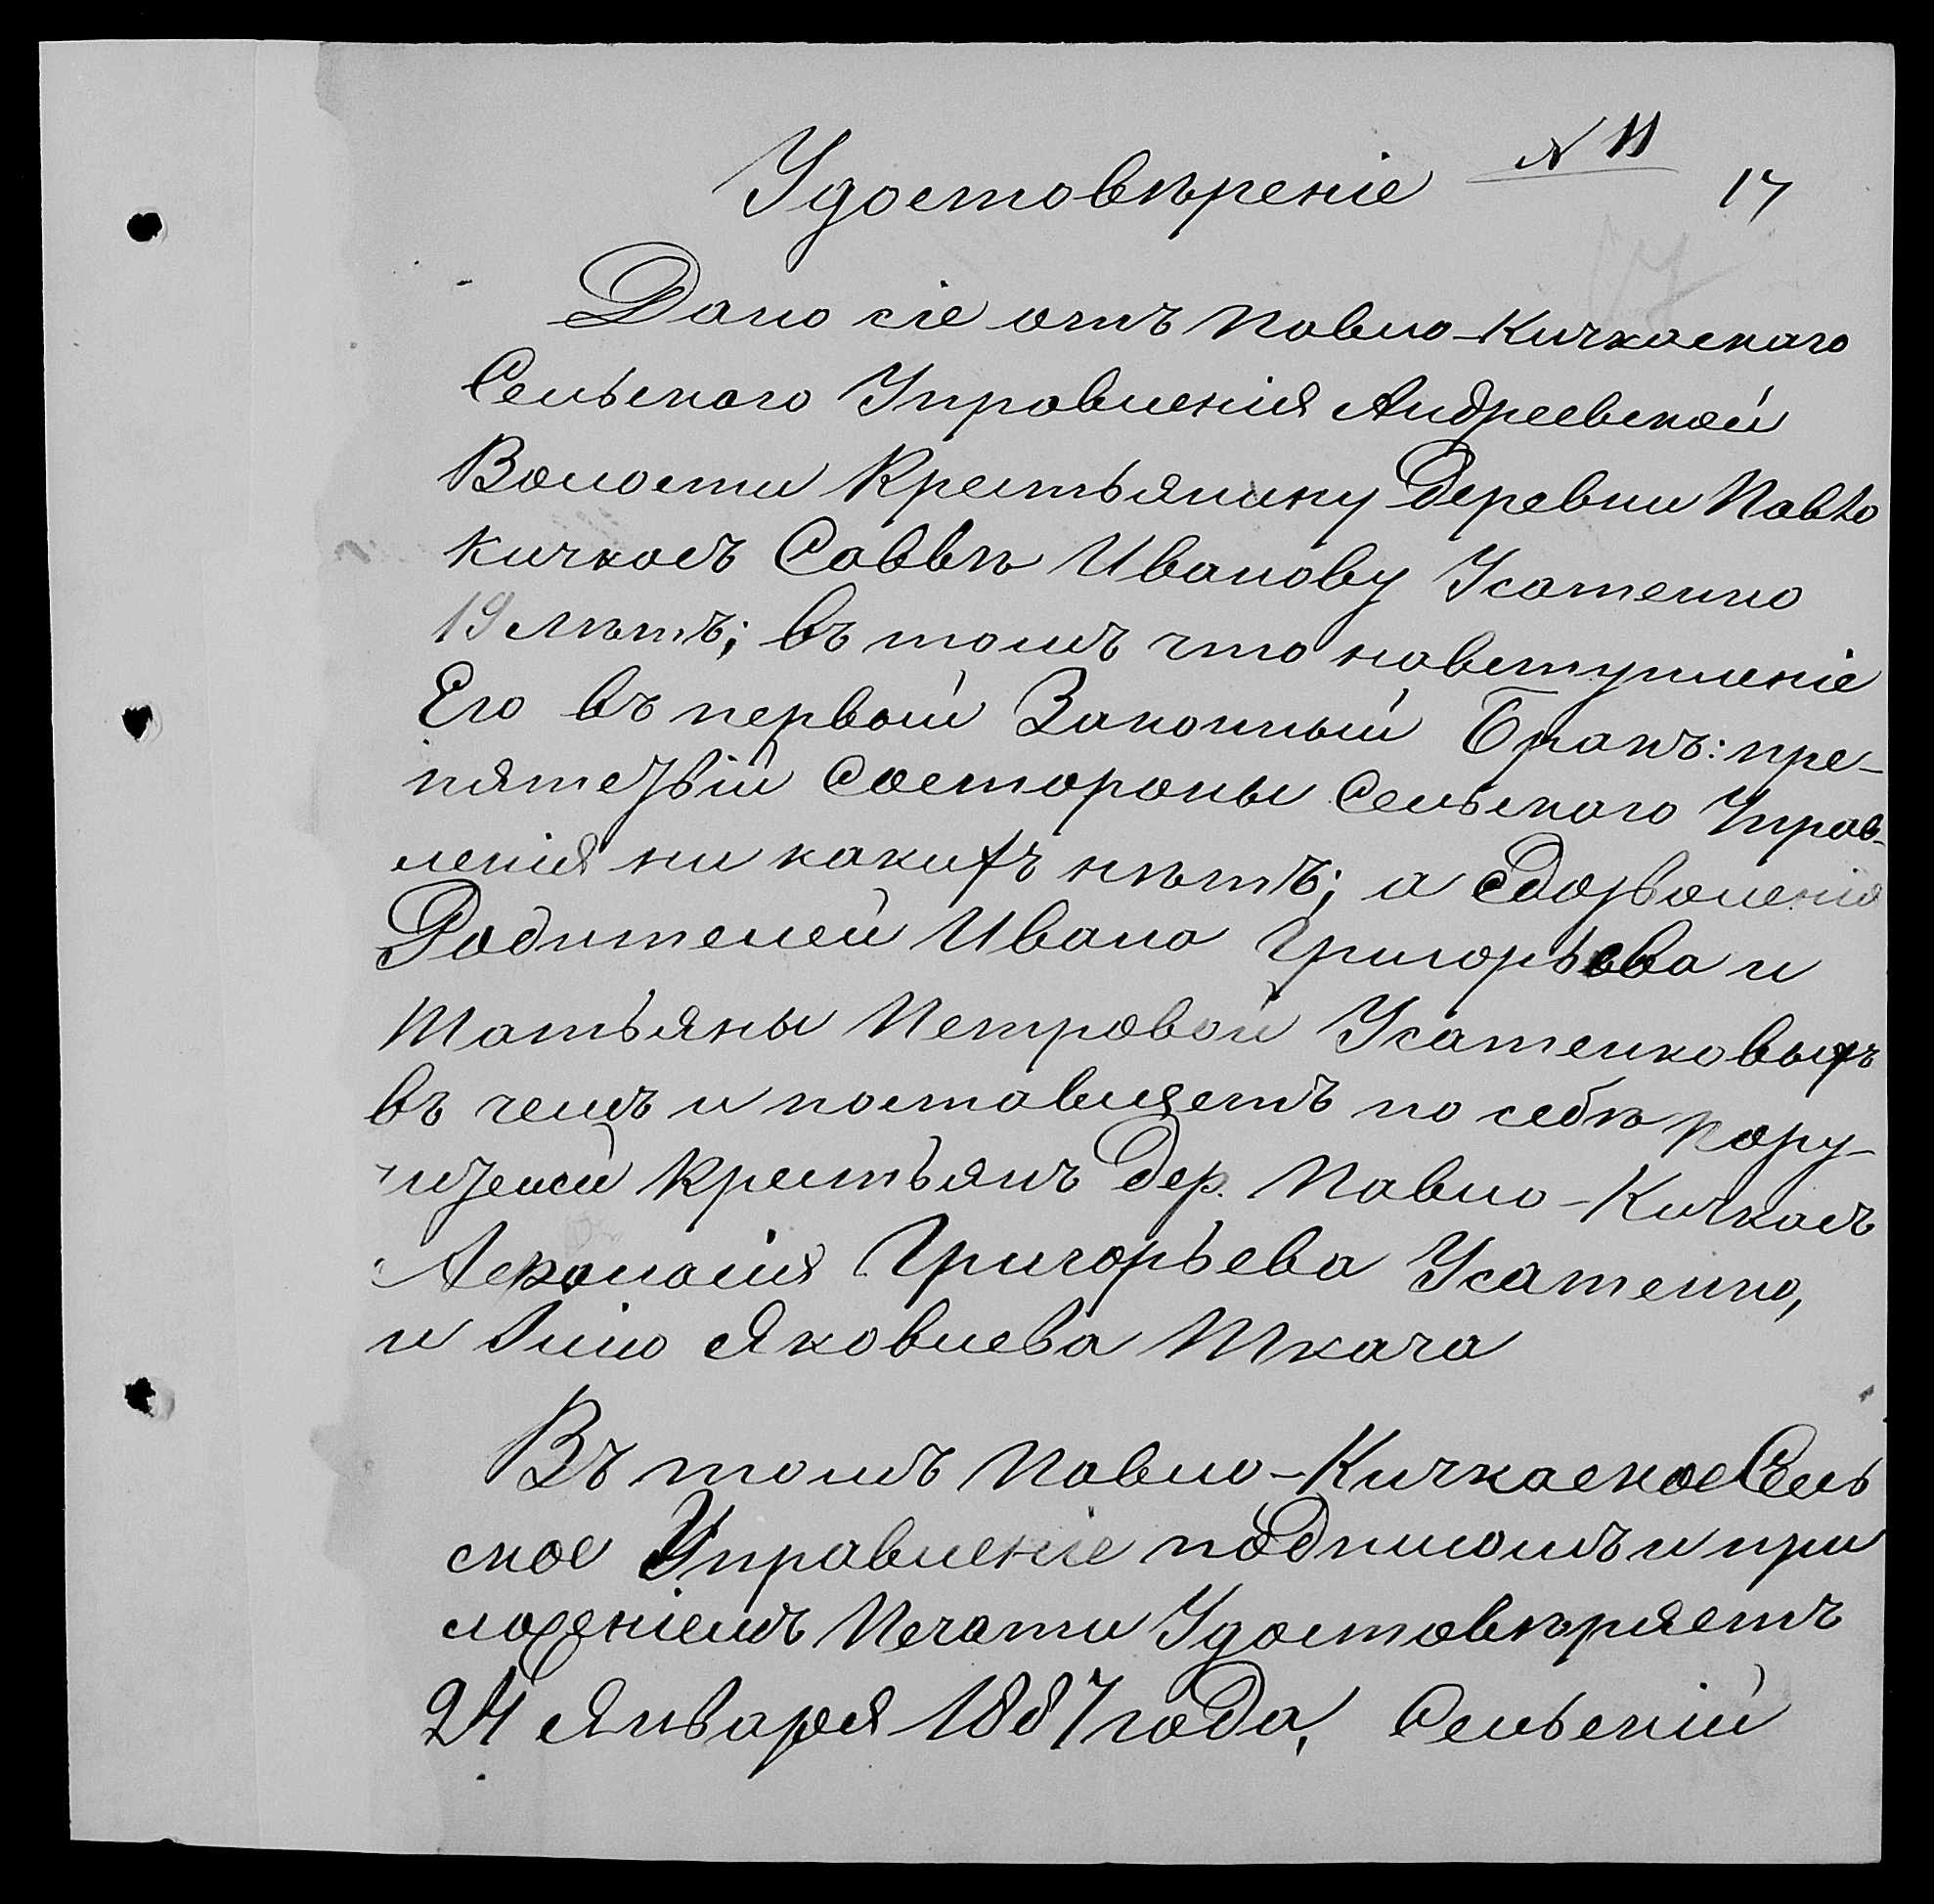 № 11
Удостовѣреніе
17
Дано сіе отъ Павло-Кичкаскаго
Сельскаго Управленія Андреевской
Волости Крестьянину Деревни Павло
Кичкасъ Саввѣ Иванову Усатенко
19 лѣтъ; въ томъ что навступленіе
Его въ первый Законный Бракъ: пре-
пятствій Состороны Сельскаго Управ-
ленія ни какихъ нѣтъ; а Сдозволенія
Родителей Ивана Григорьева и
Татьяны Петровой Усатенковыхъ
въ чемъ и поставляетъ по себѣ пору-
чителей Крестьянъ Дер. Павло-Кичкасъ
Григорьева Усатенко,
и Яковлева Ткача
Въ томъ Павло-Кичкаское Сель
ское Управленіе подписомъ и при
ложеніемъ Печати Удостовѣряетъ
24 Января 1887 года, Сельскій